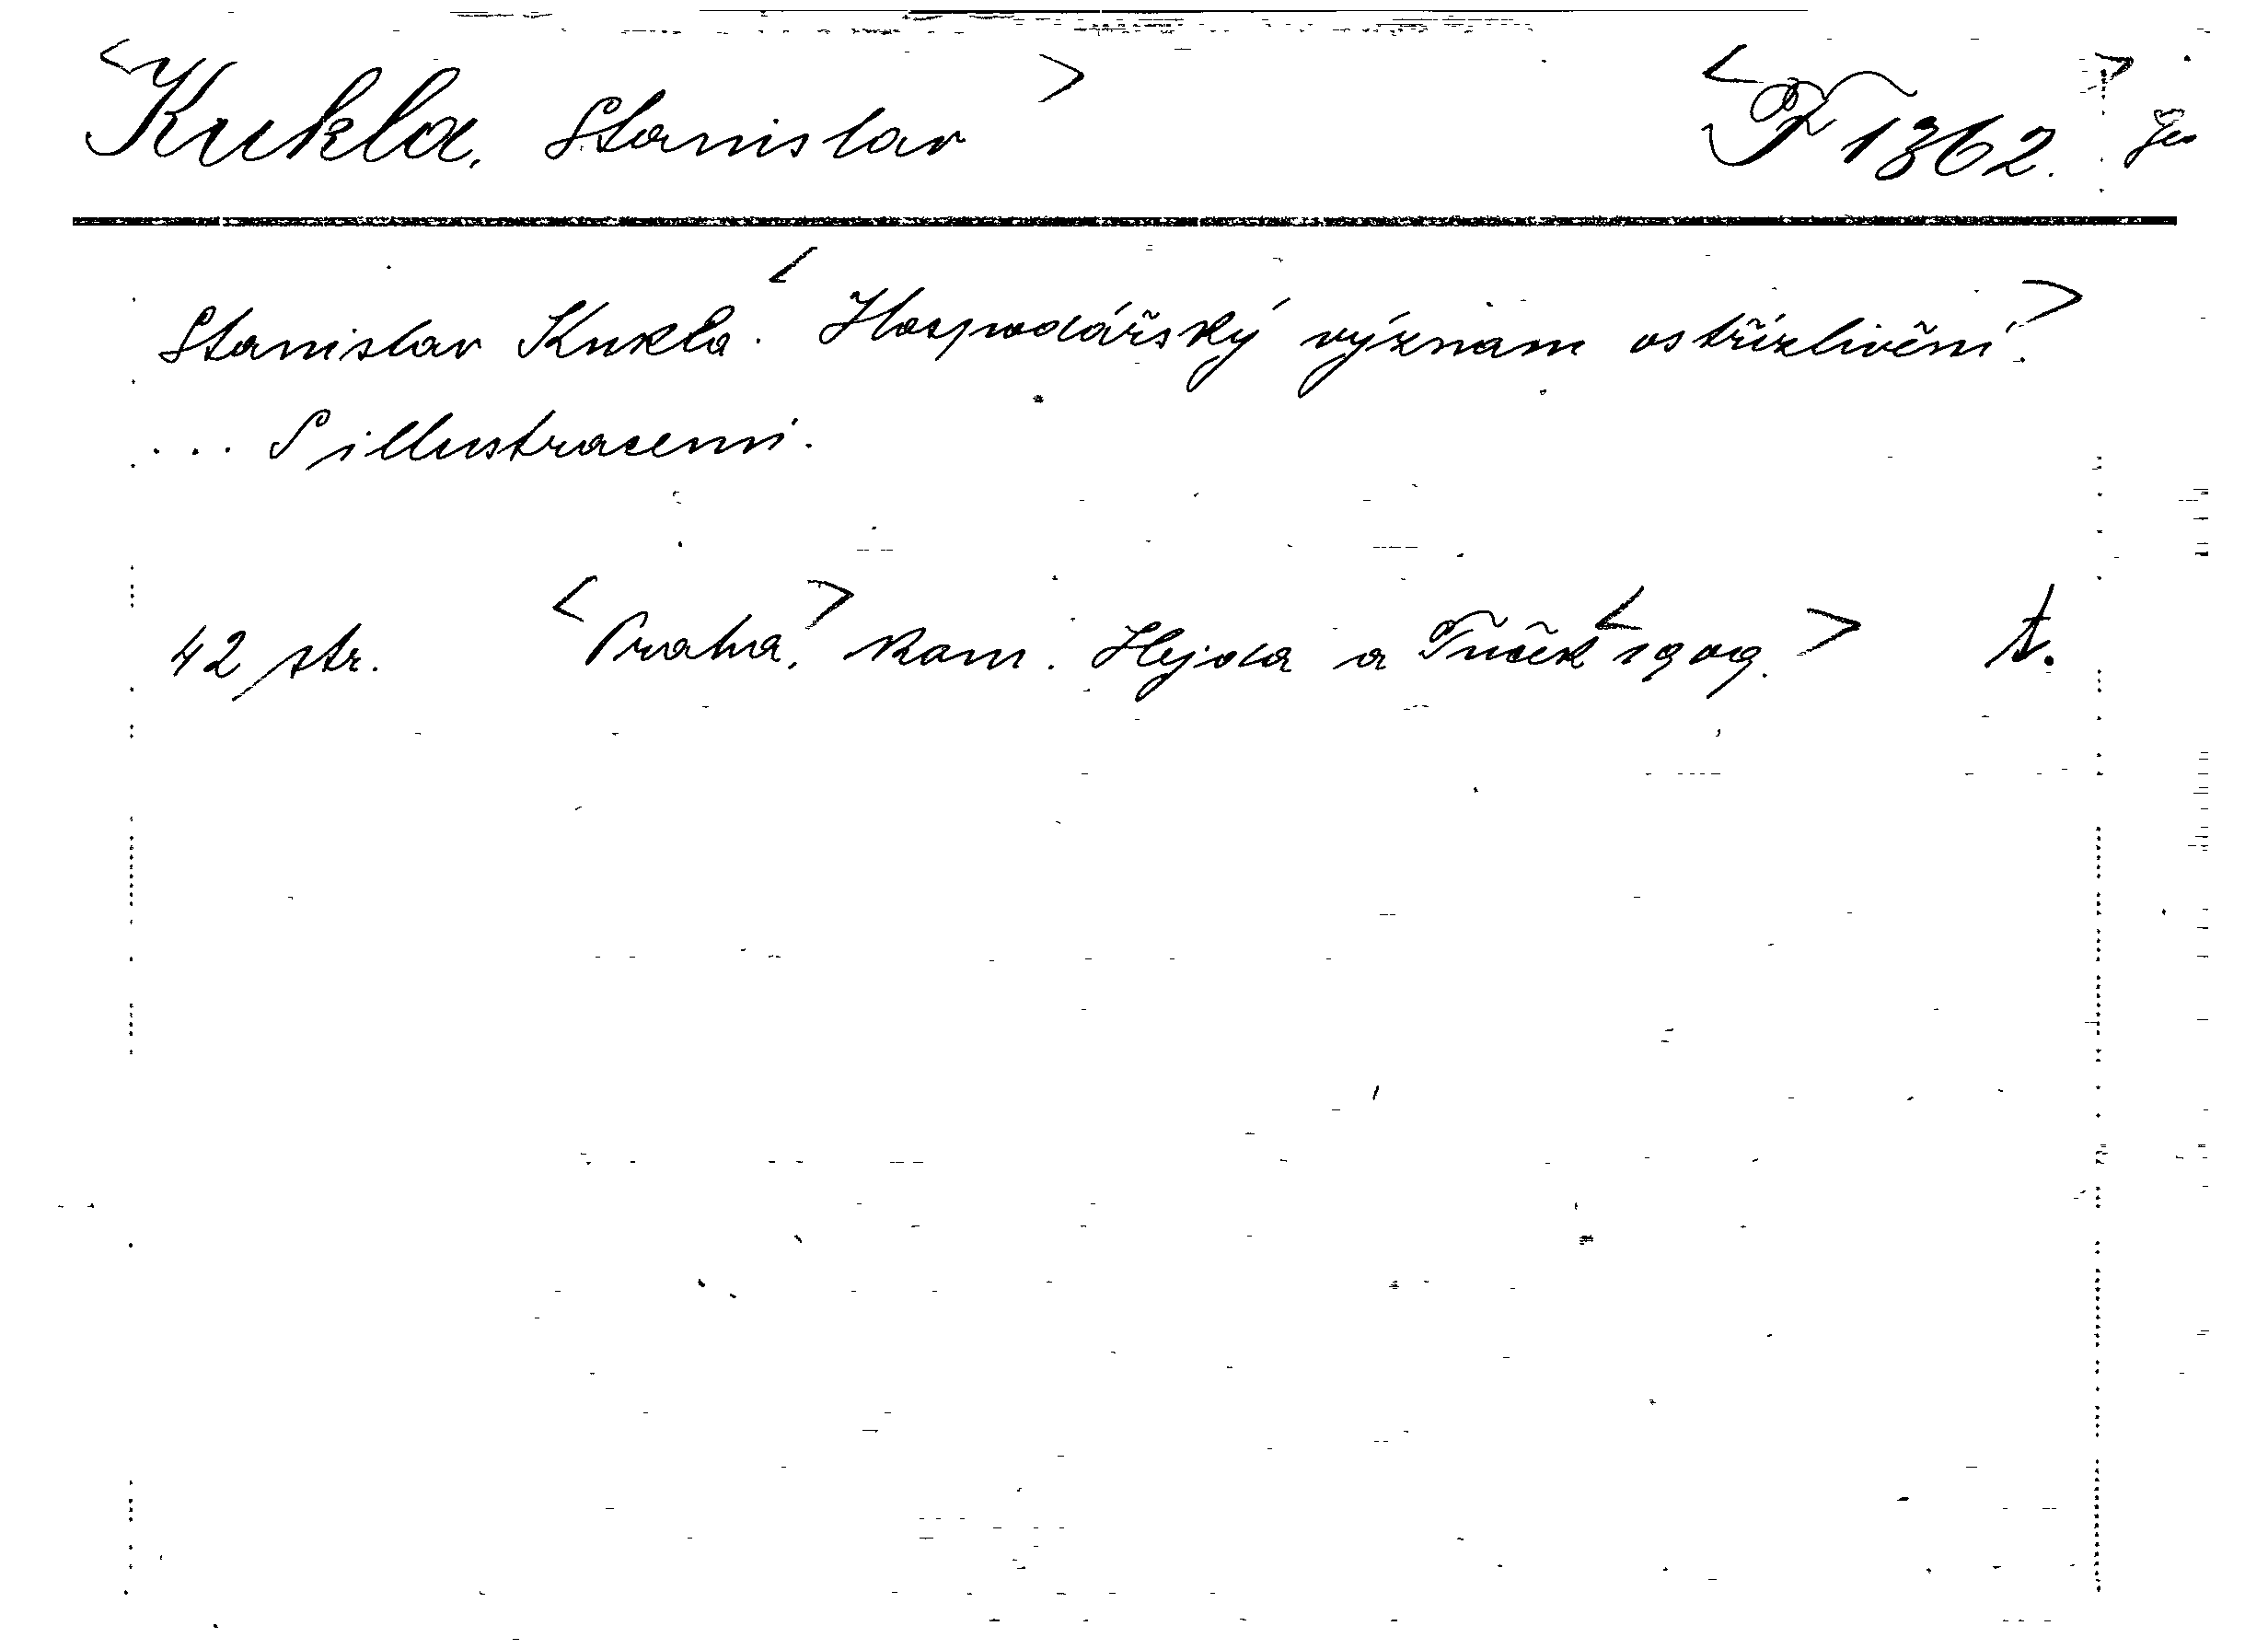 <Kukla, Stanislav> <F 1362.>
Stanislav Kukla. <Hospodářský význam ostřízlivění.>
... S illustracemi.
42 str. <Praha,> kom. Hejda a Tuček <1909.> t.